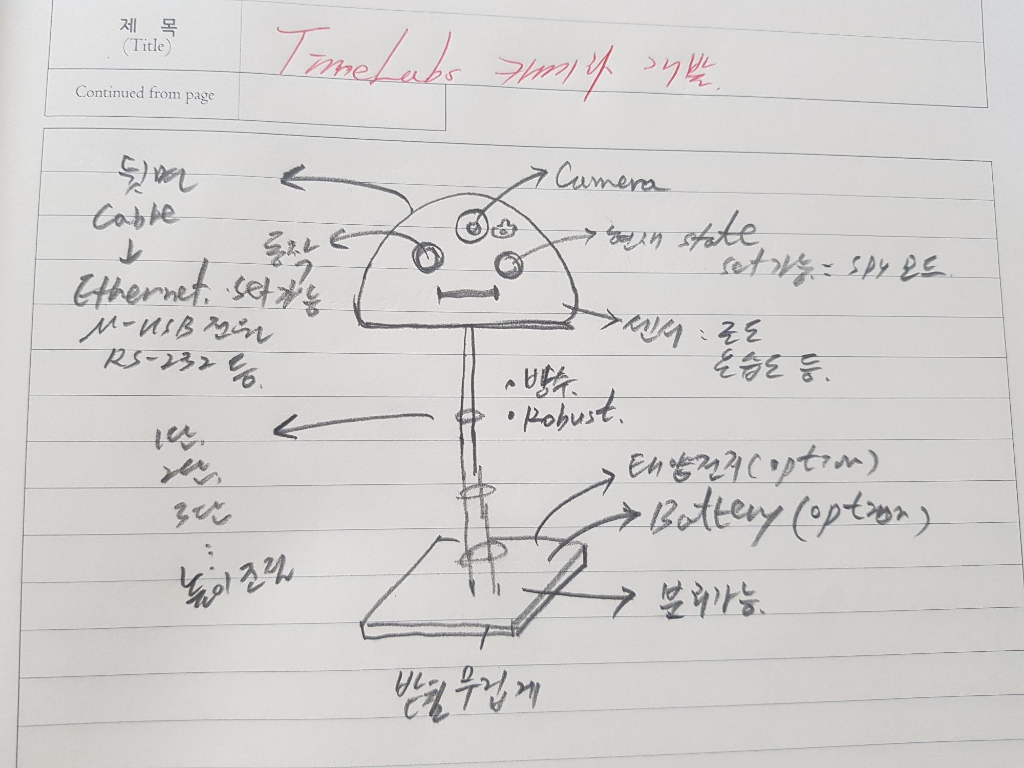 제 목
(Title)
TimeLabs 카메라 개발.
Continued from page
뒷면
Cable
Ethernet.
M-USB 전원
RS-232 등.
Camera
동작
set 가능
현재 state
set 가능 = spy 모드.
센서 : 조도
온습도 등.
• 방수.
• Robust.
1단.
2단.
3단
높이 조절
태양전지 (option)
Battery (option)
분리가능.
받침 무겁게